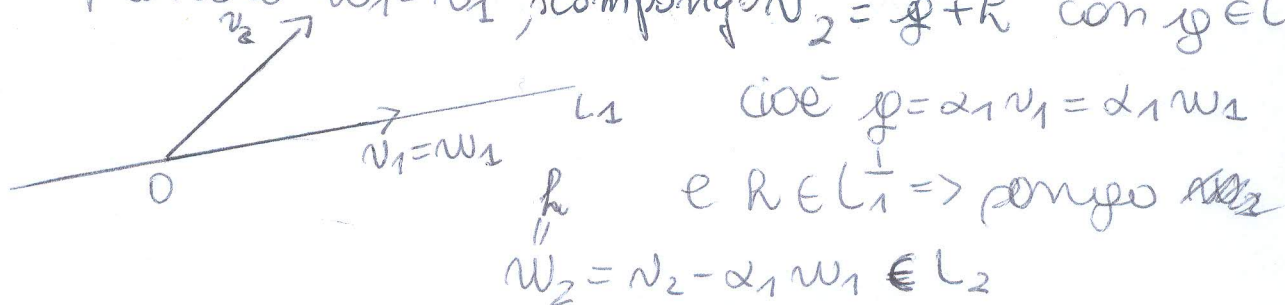 w1 = v1, scompongo v2 = g + h con g ∈ L
v2
cioè g = α1 v1 = α1 w1
L1
v1 = w1
O
h e h ∈ L1^⊥ => pongo
"
w2 = v2 - α1 w1 ∈ L2